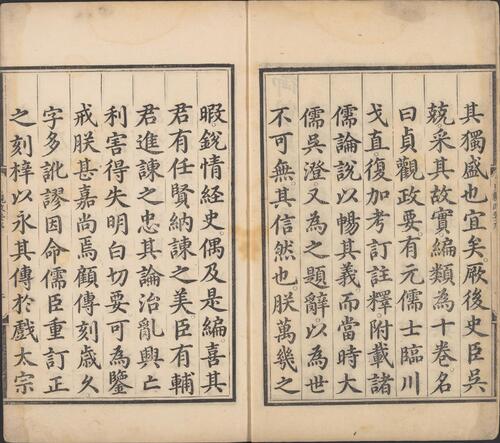 其獨盛也宜矣厥後史臣吳
兢采其故實編類為十卷名
曰貞觀政要有元儒士臨川
戈直復加考訂註釋附載諸
儒論說以暢其義而當時大
儒吳澄又為之題辭以為世
不可無其信然也朕萬幾之
暇銳情經史偶及是編喜其
君有任賢納諫之美臣有輔
君進諫之忠其論治亂興亡
利害得失明白切要可為鑒
戒朕甚嘉尚焉顧傳刻歲久
字多訛謬因命儒臣重訂正
之刻梓以永其傳於戲太宗